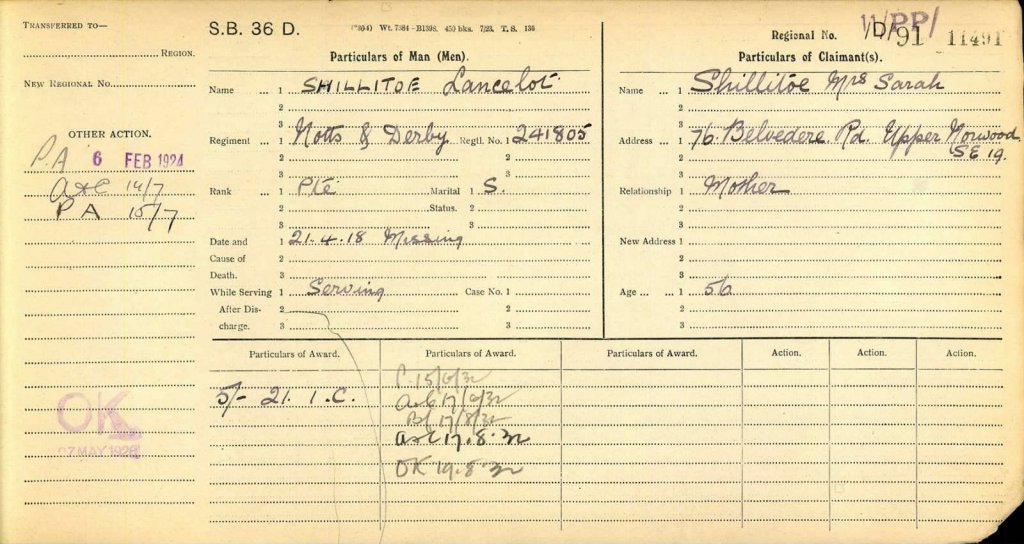 TRANSFERRED TO—
REGION.
NEW REGIONAL No.
OTHER ACTION.
P.A 6 FEB 1924
14/7
P A 15/7
OK
27 MAY 1926
S.B. 36 D.
Wt. 7384—B1398. 450 bks. 7/23. T.S. 136
Particulars of Man (Men).
Name ... 1 SHILLITOE Lancelot
2
3
Regiment ... 1 Notts & Derby Regtl. No. 1 241805
2 2
3 3
Rank ... 1 Pte Marital 1 S.
2 Status. 2
3 3
Date and 1 21.4.18 Missing
Cause of 2
Death. 3
While Serving 1 Serving Case No. 1
After Dis- 2 2
charge. 3 3
Regional No. 11/PP/
1/D/91 11491
Particulars of Claimant(s).
Name ... 1 Shillitoe Mrs Sarah
2
3
Address ... 1 76. Belvedere Rd. Upper Norwood
2 SE 19.
3
Relationship 1 Mother
2
3
New Address 1
2
3
Age ... ... 1 56
2
3
Particulars of Award. Particulars of Award. Particulars of Award. Action. Action. Action.
5/- 21. 1. C.
17/8/32
17.8.32
OK 19.8.32